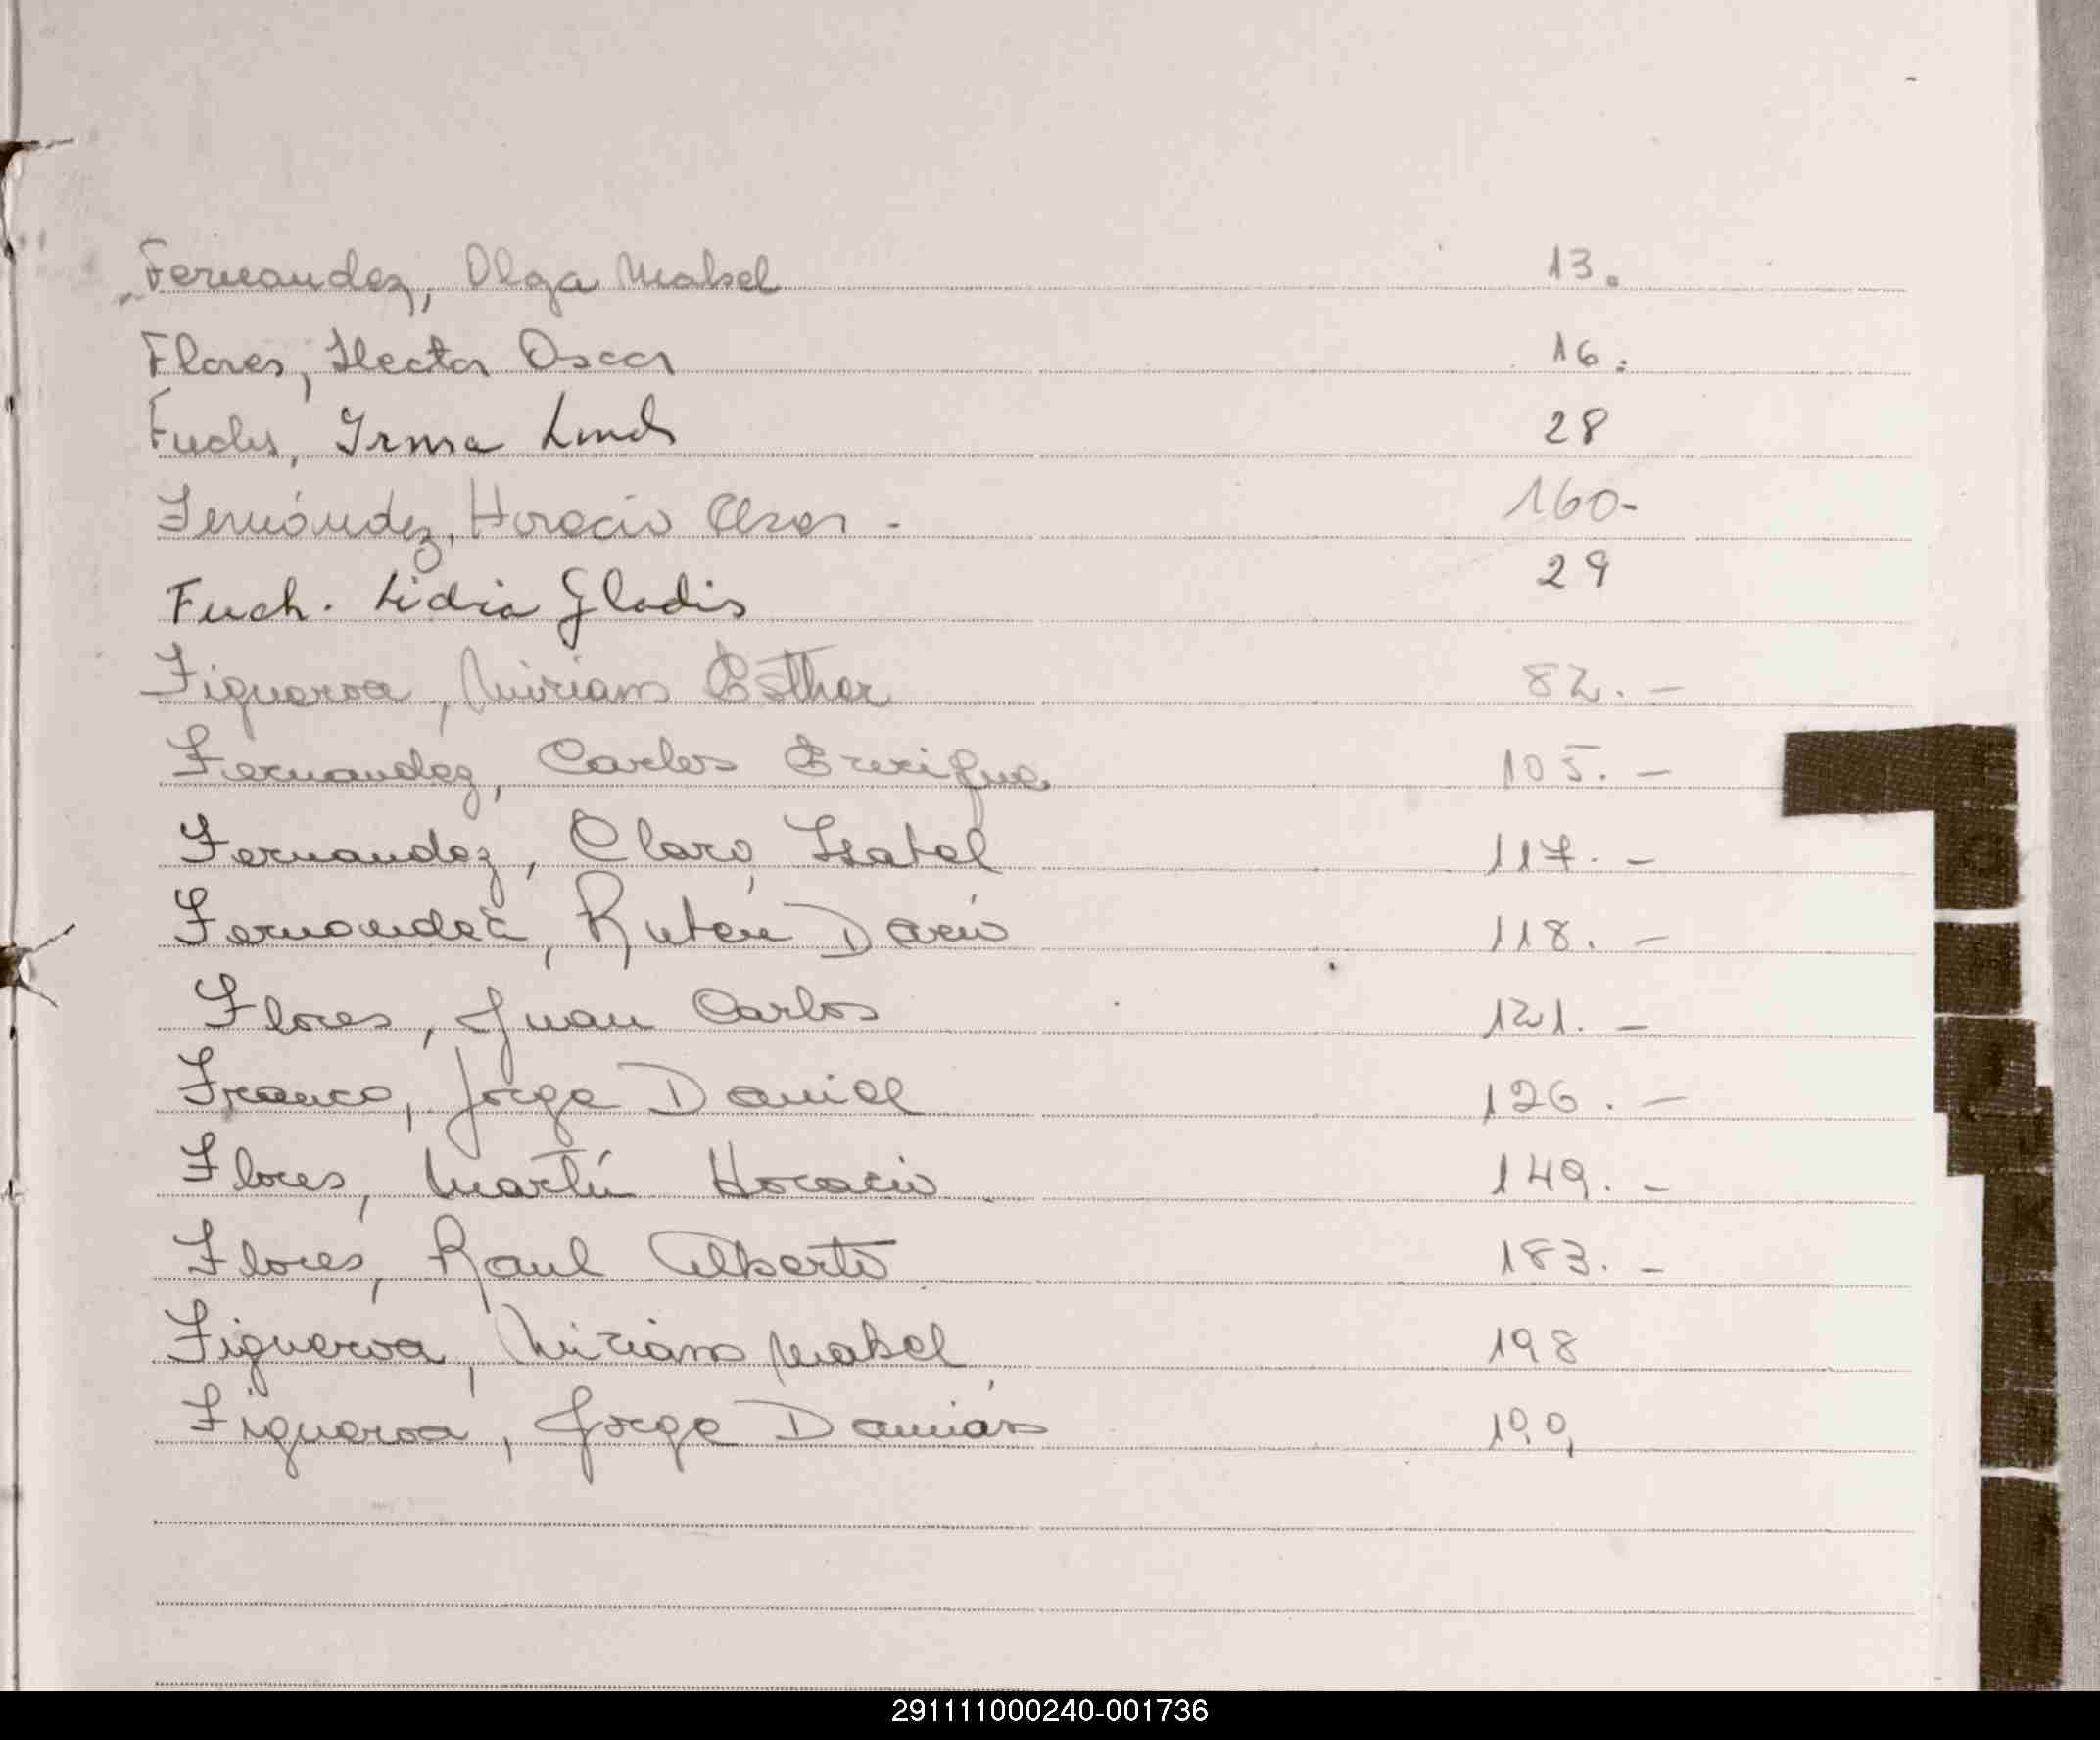 Fernandez, Olga Mabel 13.
Flores, Hector Oscar 16.
Fuchs, Irma 28
Fernández, Horacio 160-
Fuch. Lidia Gladis 29
Figueroa, Miriam Esther 82.-
Fernandez, Carlos Enrique 105.-
Fernandez, Clara, Isabel 117.-
Fernandez, Rubén Darío 118.-
Flores, Juan Carlos 121.-
Franco, Jorge Daniel 126.-
Flores, Martín Horacio 149.-
Flores, Raul Alberto 183.-
Figueroa, Miriam Mabel 198
Figueroa, Jorge Damián 199
K
291111000240-001736